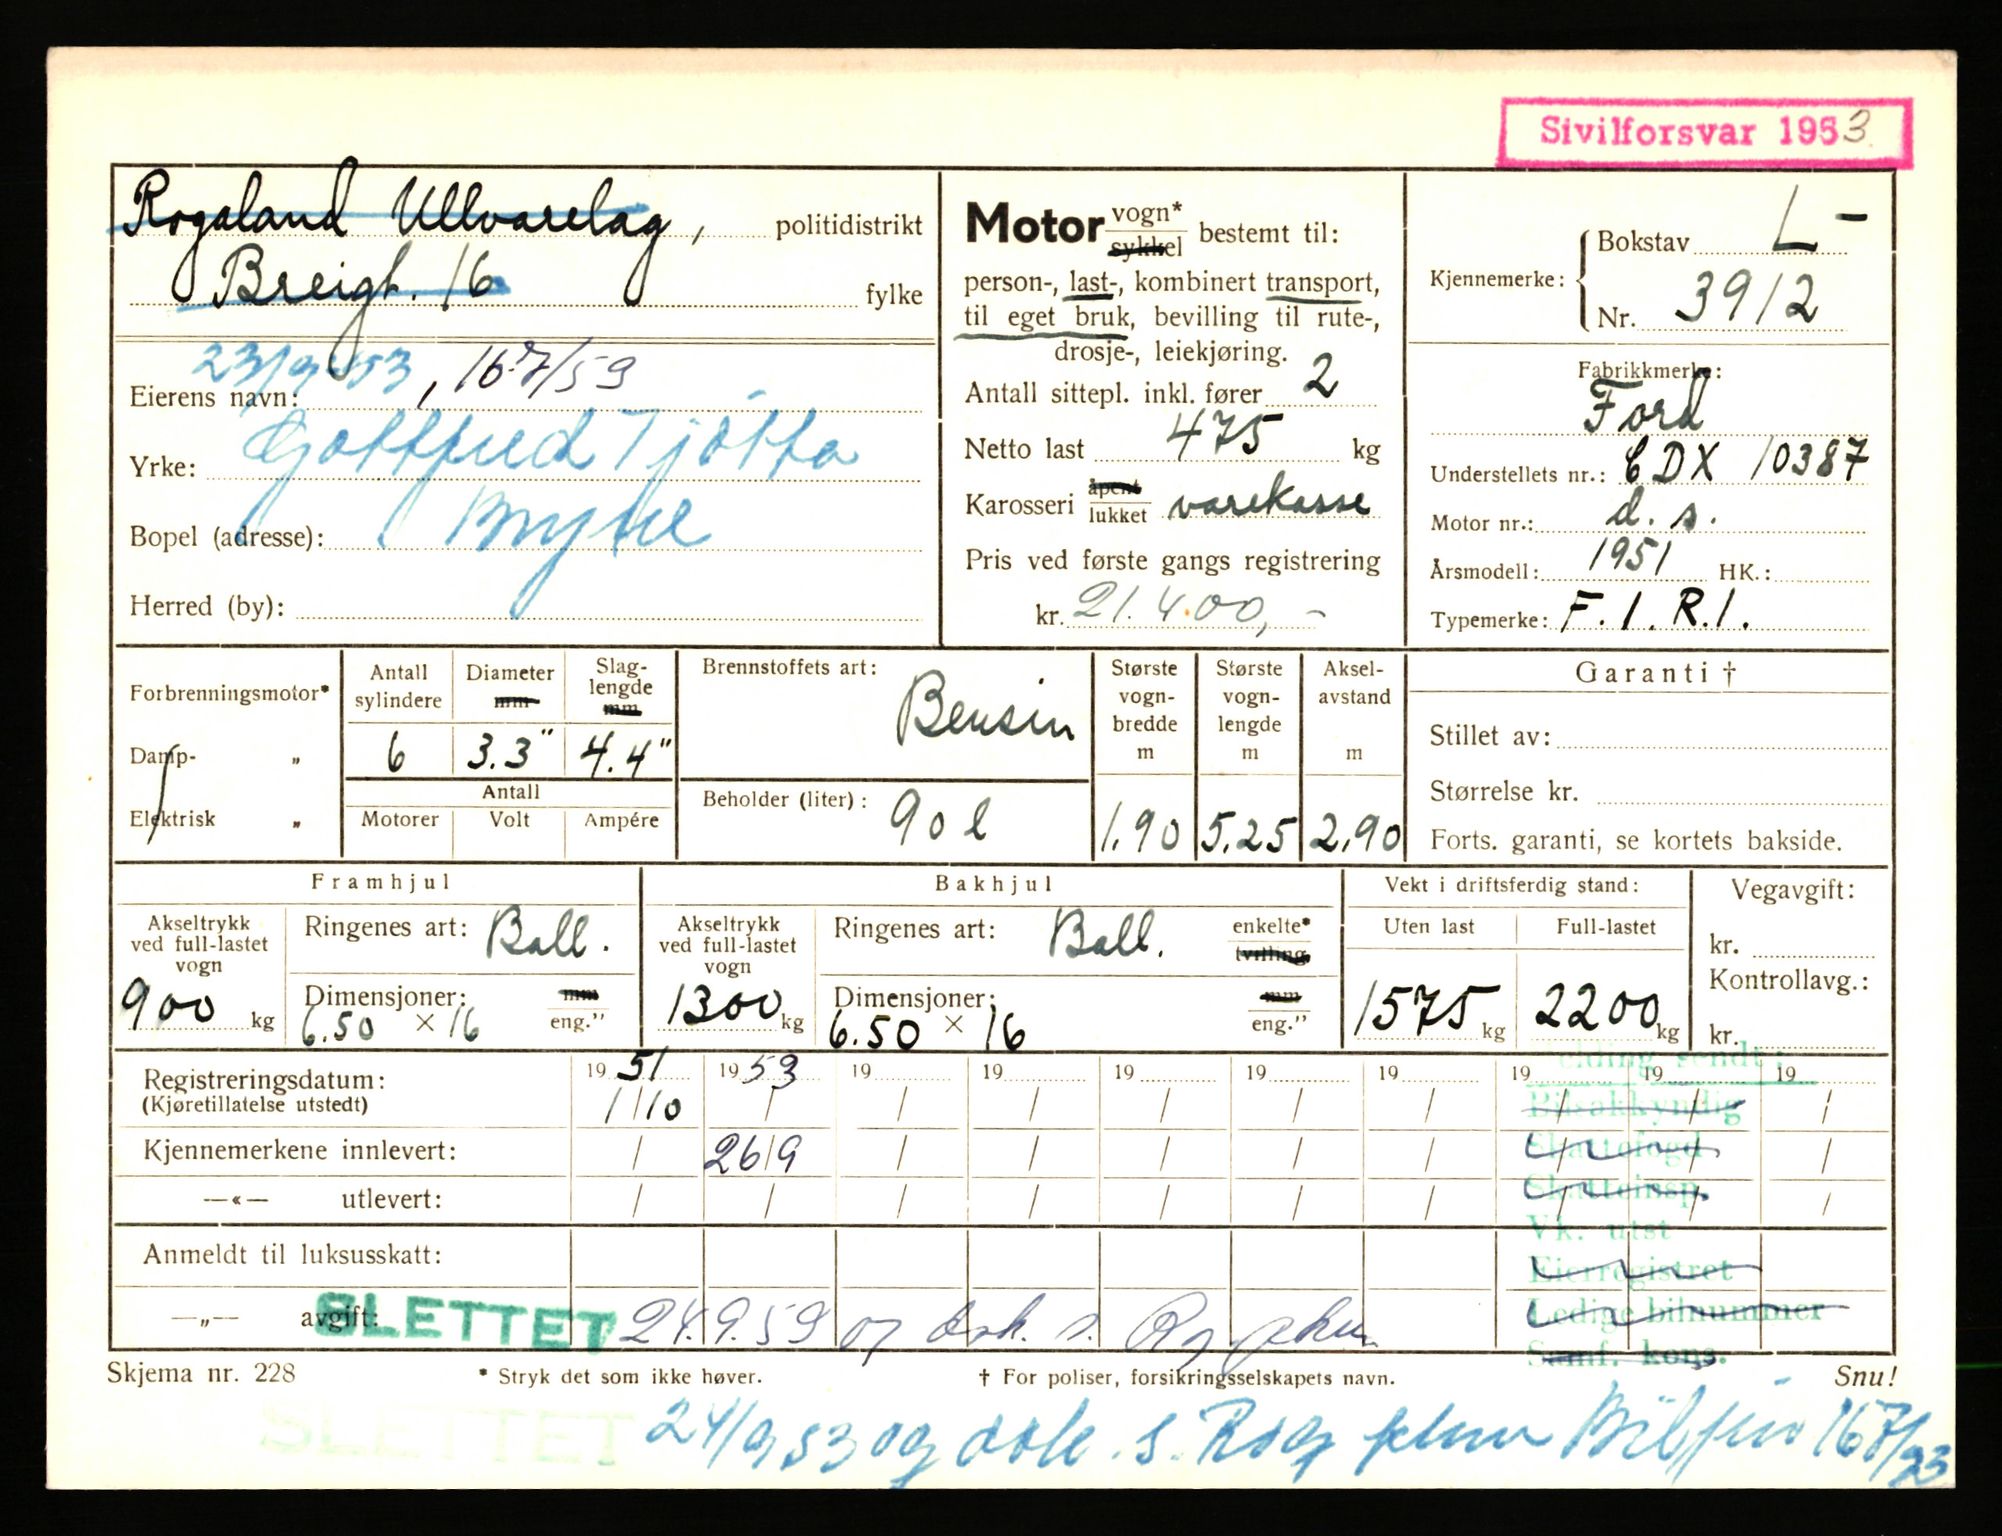 Sivilforsvar 1953.
Rogaland Ullvarelag, politidistrikt
Breigt. 16 fylke
23/9-53, 167/59
Eierens navn:
Gottfred Tjøtta
Yrke:
Bopel (adresse): Bryne
Herred (by):
Motor vogn* sykkel bestemt til:
person-, last-, kombinert transport,
til eget bruk, bevilling til rute-,
drosje-, leiekjøring.
Antall sittepl. inkl. fører 2
Netto last 475 kg
Karosseri åpent lukket varekasse
Pris ved første gangs registrering
kr. 21.400,-
Kjennemerke: Bokstav L-
Nr. 3912
Fabrikkmerke:
Ford
Understellets nr.: CDX 10387
Motor nr.: d. s.
Årsmodell: 1951 HK.:
Typemerke: F. 1. R.1.
Forbrenningsmotor*
Damp- „
Elektrisk „
Antall sylindere 6
Diameter mm 3.3"
Slag-lengde mm 4.4"
Antall
Motorer Volt Ampére
Brennstoffets art: Bensin
Beholder (liter): 90 l
Største vogn-bredde m 1.90
Største vogn-lengde m 5.25
Aksel-avstand m 2.90
Garanti †
Stillet av:
Størrelse kr.
Forts. garanti, se kortets bakside.
Framhjul
Akseltrykk ved full-lastet vogn 900 kg
Ringenes art: Ball.
Dimensjoner: mm eng."
6.50 × 16
Bakhjul
Akseltrykk ved full-lastet vogn 1300 kg
Ringenes art: Ball. enkelte* tvilling.
Dimensjoner: mm eng."
6.50 × 16
Vekt i driftsferdig stand:
Uten last Full-lastet
1575 kg 2200 kg
Vegavgift:
kr.
Kontrollavg.:
kr.
Registreringsdatum: 1951 1953 19 19 19 19 19 19 19 19
(Kjøretillatelse utstedt) 1/10 / / / / / / / / /
Kjennemerkene innlevert: / 26/9 / / / / / / / /
—«— utlevert: / / / / / / / / / /
Anmeldt til luksusskatt:
—„— avgift:
elding sendt:
Bilsakkyndig
Skattefogd
Skatteinsp.
Vk. utst
Eierregistret
Ledige bilnummer
Samf. kons.
SLETTET 24.9.59 og dok. s.
Skjema nr. 228 * Stryk det som ikke høver. † For poliser, forsikringsselskapets navn. Snu!
SLETTET 24/9 53 og dok. s. Rog